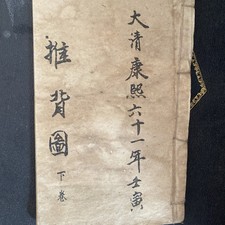 大清康熙六十一年壬寅
推背圖
下卷